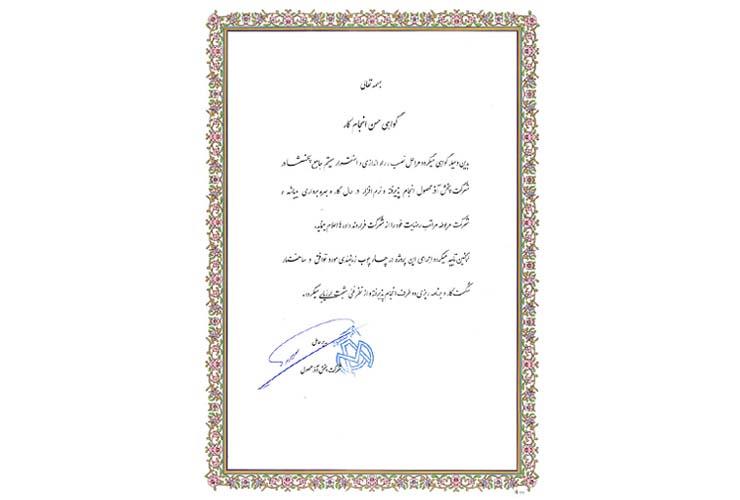 بسمه تعالی
گواهی حسن انجام کار
بدین وسیله گواهی میگردد مراحل نصب، راه اندازی و استقرار سیستم جامع پخش در
شرکت پخش آذر محصول انجام پذیرفته و نرم افزار در حال کار و بهره برداری میباشد و
شرکت مربوطه مراتب رضایت خود را از شرکت فراروند داده ها اعلام مینماید.
همچنین تایید میگردد اجرای این پروژه در چهار چوب زمانبندی مورد توافق و ساختار
شکست کار و برنامه ریزی دو طرف انجام پذیرفته و از نظر فنی مثبت ارزیابی میگردد.
مدیر عامل
شرکت پخش آذر محصول